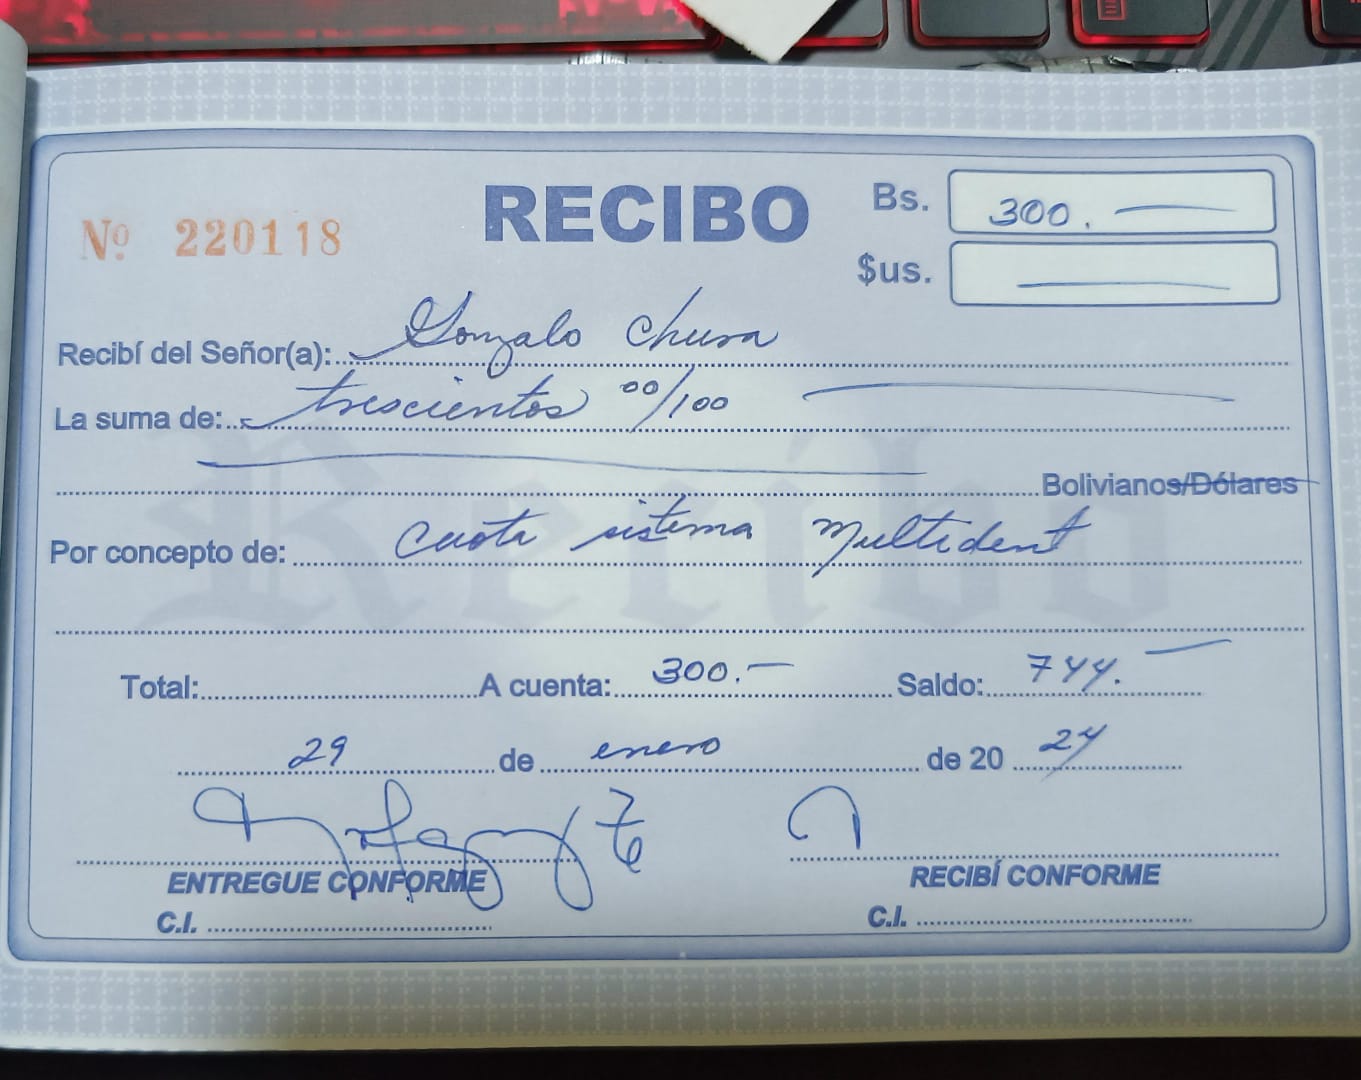 RECIBO
Bs. 300.
Nº 220118
$us.
Recibí del Señor(a): Gonzalo Chura
La suma de: trescientos 00/100
Bolivianos/Dólares
Por concepto de: Cuota sistema Multident
Total: A cuenta: 300.— Saldo: 744.
29 de enero de 20 24
ENTREGUE CONFORME
RECIBÍ CONFORME
C.I.
C.I.
Recibo